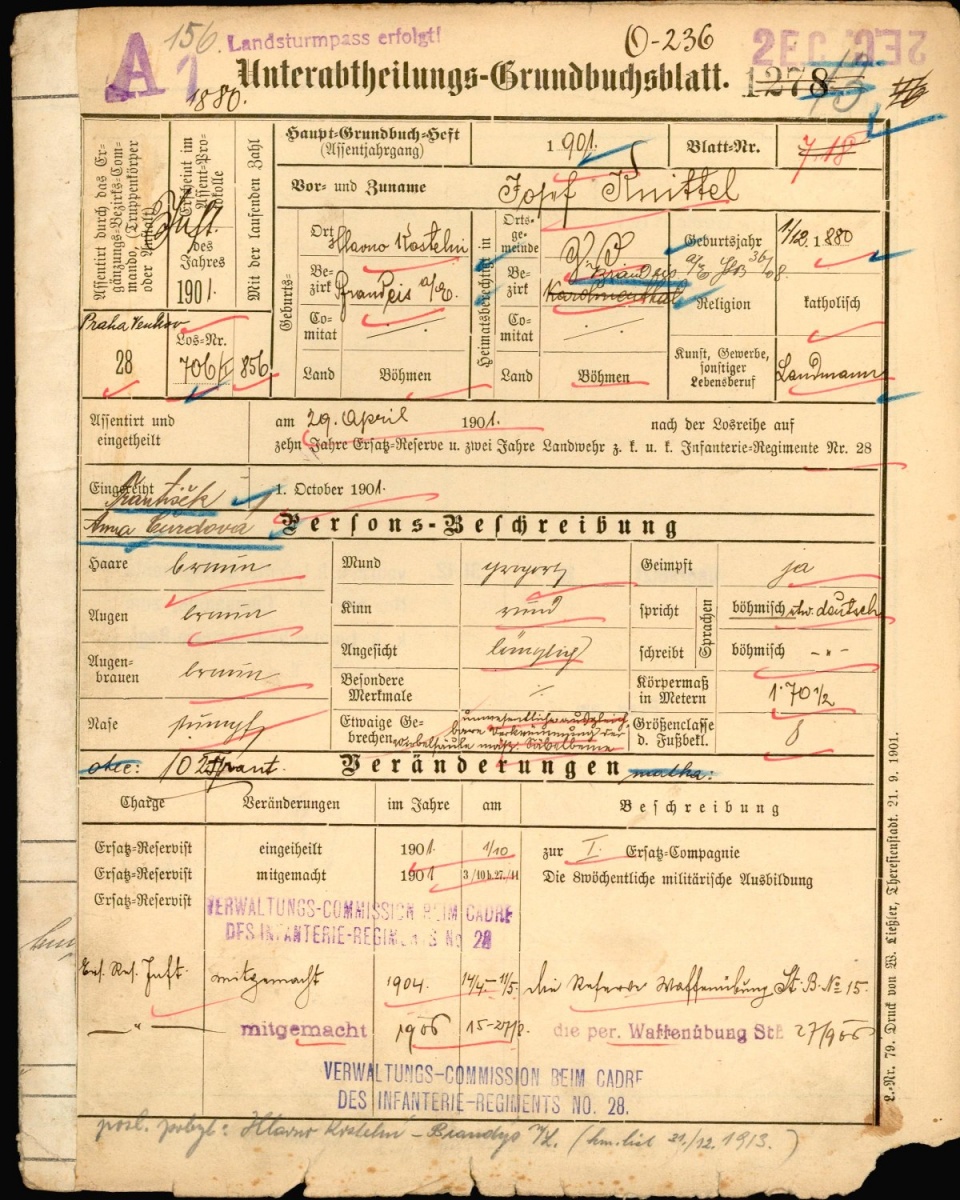 A 1
156.
Landsturmpass erfolgt!
O-236
1880.
Unterabtheilungs-Grundbuchsblatt.
1278
Assentirt durch das Ergänzungs-Bezirks-Commando, (Truppenkörper oder Anstalt)
Erscheint im Assent-Protokolle
des Jahres
1901.
Mit der laufenden Zahl
Praha Venkov
28
Los-Nr.
706/I
856
Haupt-Grundbuch-Heft
(Assentjahrgang)
1901.
Blatt-Nr.
718
Vor- und Zuname
Josef Knittel
Geburts-
Ort
Hlavno Kostelni
Bezirk
Brandeis a/E.
Comitat
Land
Böhmen
Heimatsberechtigt in
Ortsgemeinde
Bezirk
Brandeis a/E
Karolinenthal
Comitat
Land
Böhmen
Geburtsjahr
1/12. 1880
Religion
katholisch
Kunst, Gewerbe, sonstiger Lebensberuf
Landmann
Assentirt und eingetheilt
am 29. April 1901. nach der Losreihe auf
zehn Jahre Ersatz-Reserve u. zwei Jahre Landwehr z. k. u. k. Infanterie-Regimente Nr. 28
Eingereiht
1. October 1901.
František
Anna Čurdová
Persons-Beschreibung
Haare braun
Mund proport.
Geimpft ja
Augen braun
Kinn rund
spricht Sprachen böhmisch etw. deutsch
Augenbrauen braun
Angesicht länglich
schreibt böhmisch -"-
Besondere Merkmale ./.
Körpermaß in Metern 1·70 1/2
Nase stumpf
Etwaige Gebrechen
unwesentliche ausgleichbare Verkrümmung der Wirbelsäule mäß. Säbelbeine
Größenclasse d. Fußbekl. 8
otec:
Veränderungen
matka:
Charge
Veränderungen
im Jahre
am
Beschreibung
Ersatz-Reservist eingetheilt 1901. 1/10 zur I. Ersatz-Compagnie
Ersatz-Reservist mitgemacht 1901 3/10 b. 27./11 Die 8wöchentliche militärische Ausbildung
Ersatz-Reservist
VERWALTUNGS-COMMISSION BEIM CADRE
DES INFANTERIE-REGIMENTS No 28
Ers. Res. Inft. mitgemacht 1904. 14/4-11/5. die Reserve Waffenübung St. B. No 15.
-"- mitgemacht 1906 15-27/8. die per. Waffenübung StB 27/906
VERWALTUNGS-COMMISSION BEIM CADRE
DES INFANTERIE-REGIMENTS NO. 28.
posl. pobyt: Hlavno Kostelní - Brandýs n/L. (dm. list 21./12. 1913.)
L.-Nr. 79. Druck von W. Ließler, Theresienstadt. 21. 9. 1901.